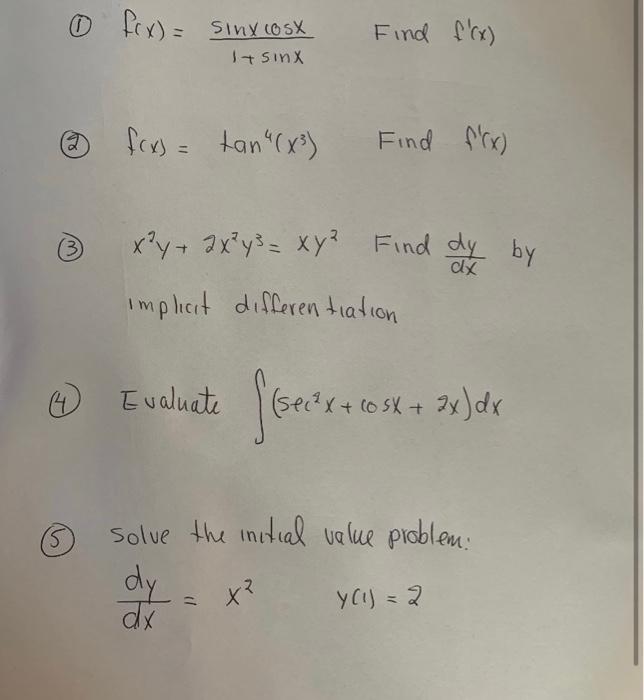 ① f(x) = sinx cosx / 1 + sinx Find f'(x)
② f(x) = tan⁴(x³) Find f'(x)
③ x²y + 2x²y³ = xy² Find dy/dx by
implicit differentiation
④ Evaluate ∫(sec²x + cosx + 2x)dx
⑤ solve the initial value problem:
dy/dx = x² y(1) = 2